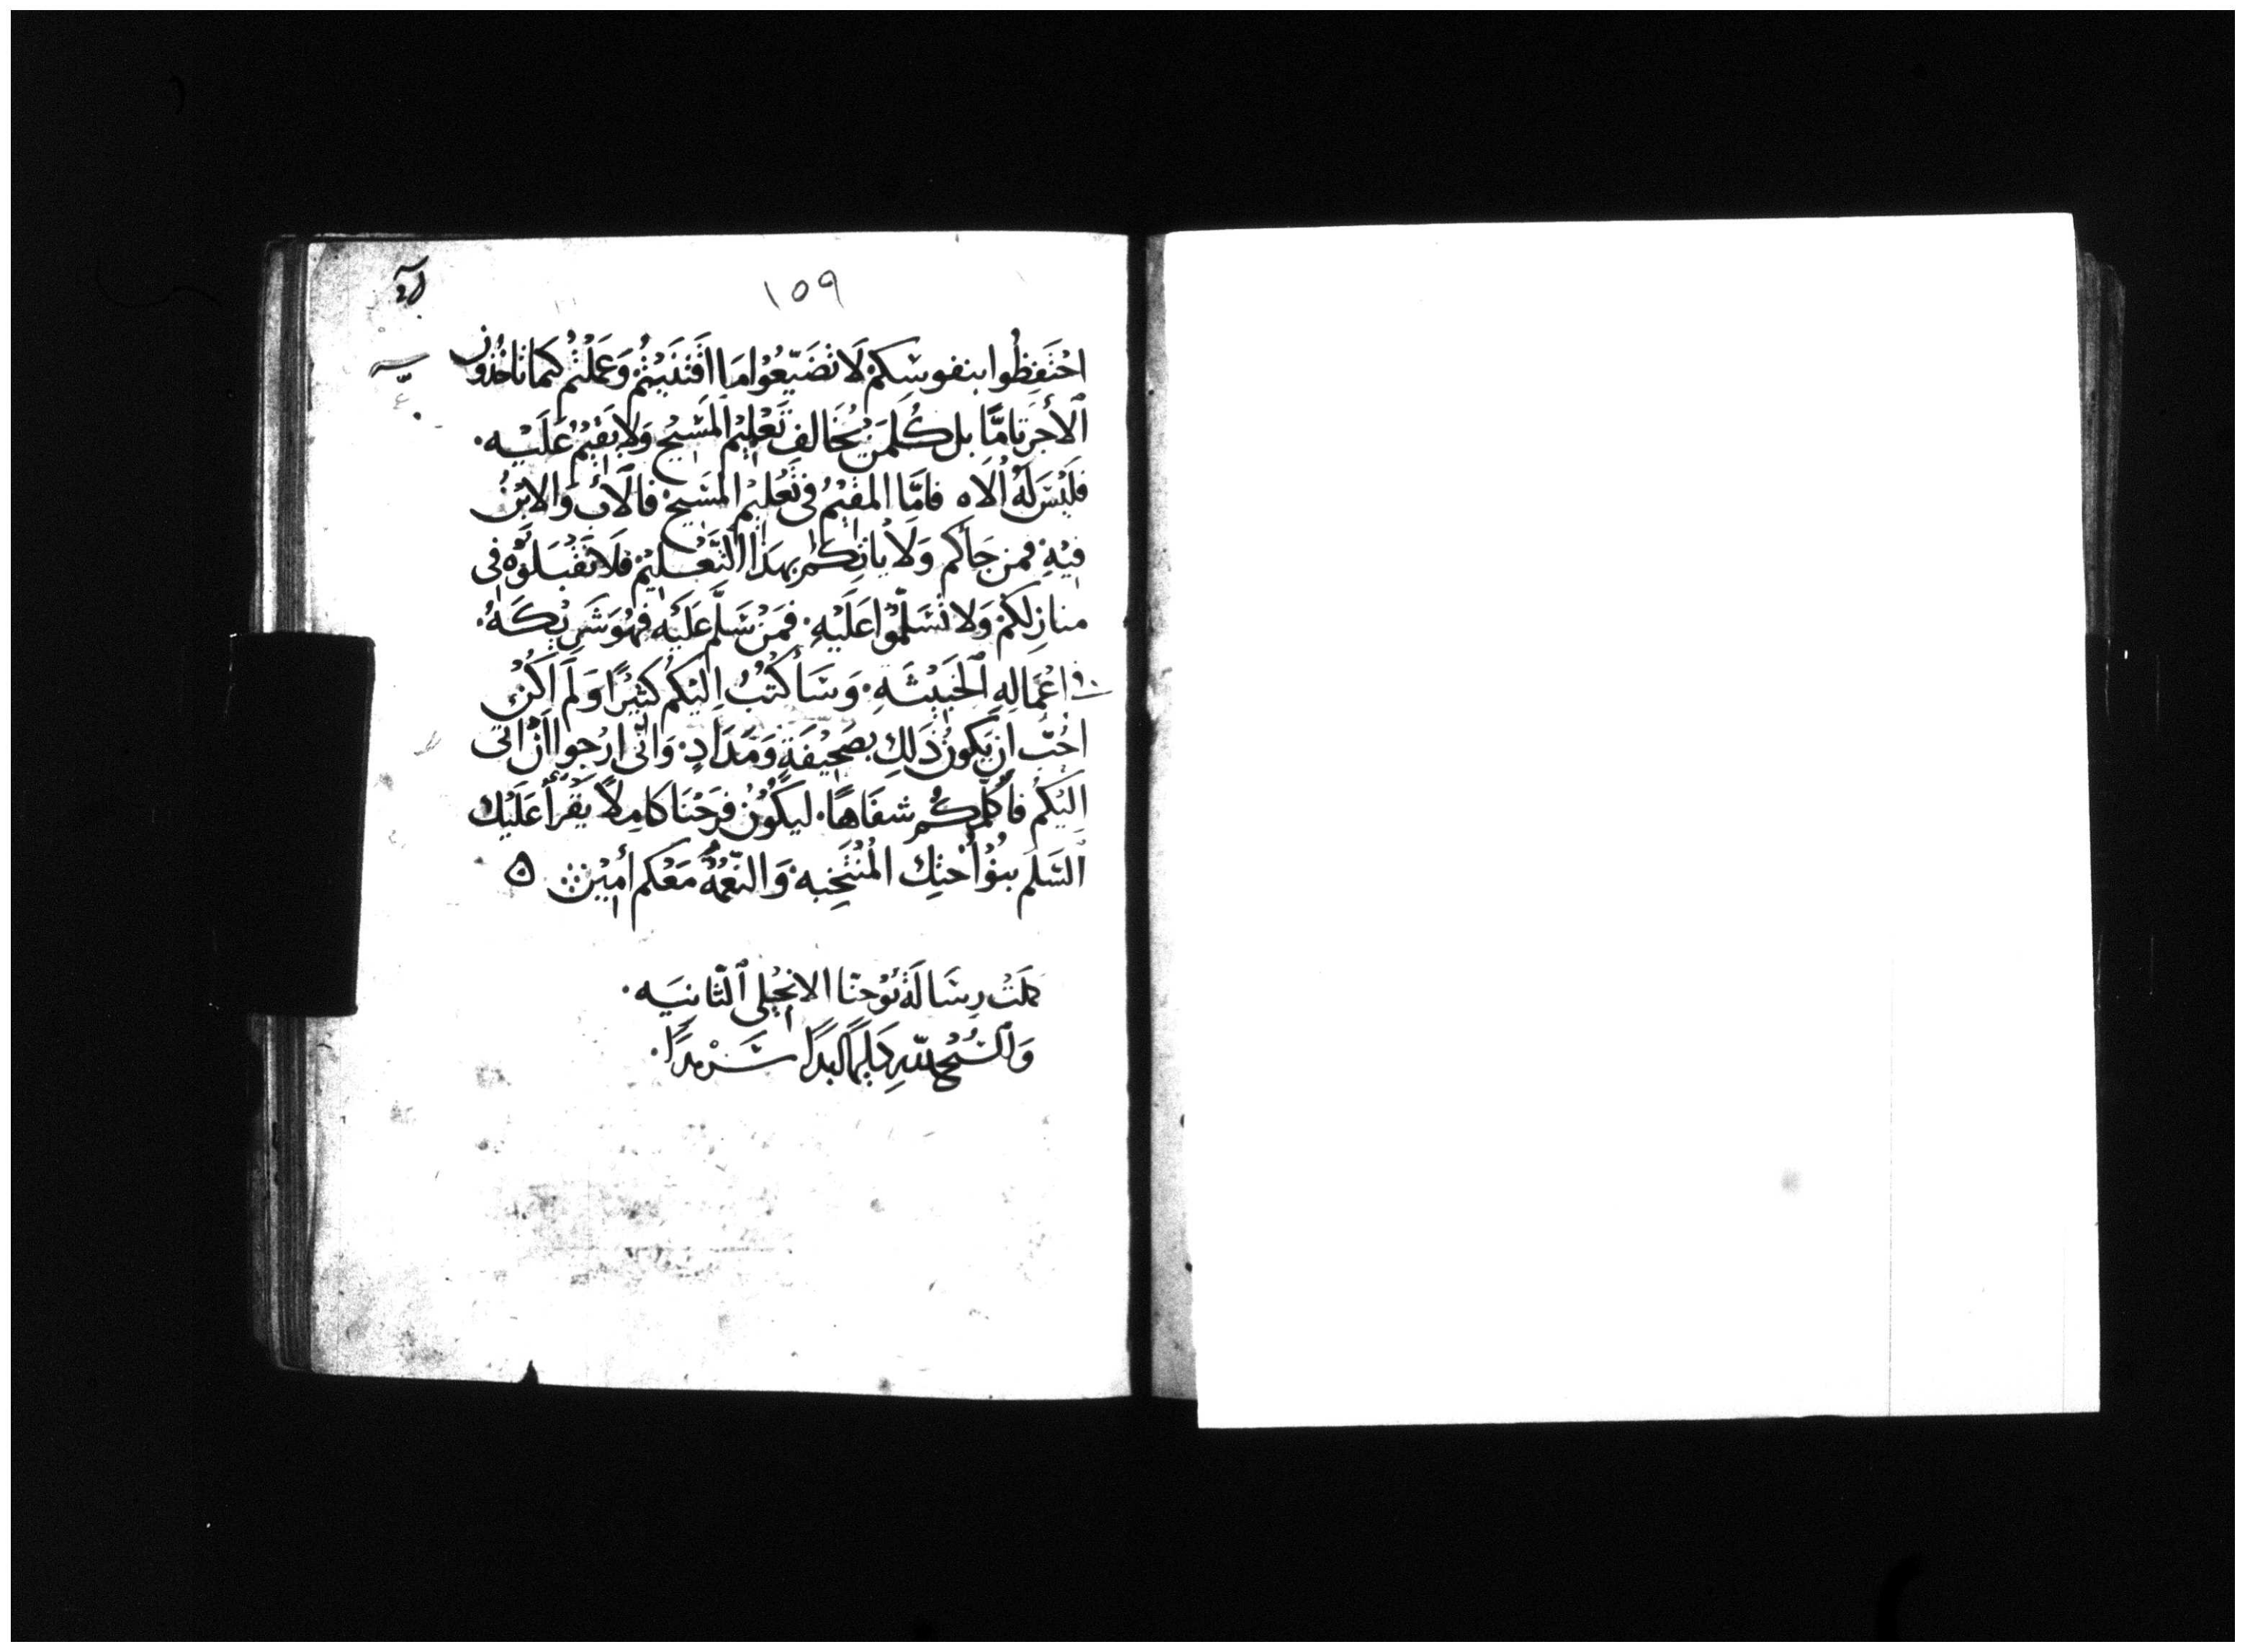 ١٥٩
احْتَفِظُوا بنفوسِكمْ لَا تُضَيّعُوْا مَا اقْتَنَيْتُمْ وَعَمَلْتُمْ كَيمَا تَاخُذُون
الأجرَ تَامًّا بل كُلمَنْ يُخَالف تَعْلِيْم المَسِيْحِ وَلا يَقِيْمُ عَلَيْهِ.
فَليْسَ لَهُ الَاه فامَّا المقيْمُ فى تَعْليْم المَسِيحْ فالَابُ وَالابْنُ
فيْهِ فمن جَأكم وَلَا يَاتِكمْ بهَذا التَّعْليْم فلَا تَقْبَلوْه فى
منازلكمْ وَلا تُسَلّمُوْا عَلَيْهِ. فمَنْ سَلَّم عَلَيْه فهُوَ شَريْكَهُ.
فى اعْمَالِهِ الخَبيْثَهِ. وَسَأكتُبُ اليْكمْ كثيْرًا وَلَم اكُنْ
احُبّ ان يَكونُ ذَلِك بصَحِيْفَةٍ وَمَدَادٍ. وَانّى ارْجوا ان اتى
اليْكُمْ فأكلّمكُم شفَاهًا. ليكُوْنُ فرَحْنَا كَامِلاً يَقْرَأ عَلَيْك
السَّلَم بنُوْ أُختِك المُنْتَخِبه. وَالنّعْمَةُ مَعَكم أميْن ه
كملَتْ رسَالَةْ يُوْحنّا الانجيْلى الثّانيَه.
وَالسُبْح للّهِ دَايمًا ابدًا سَرْمدًا.